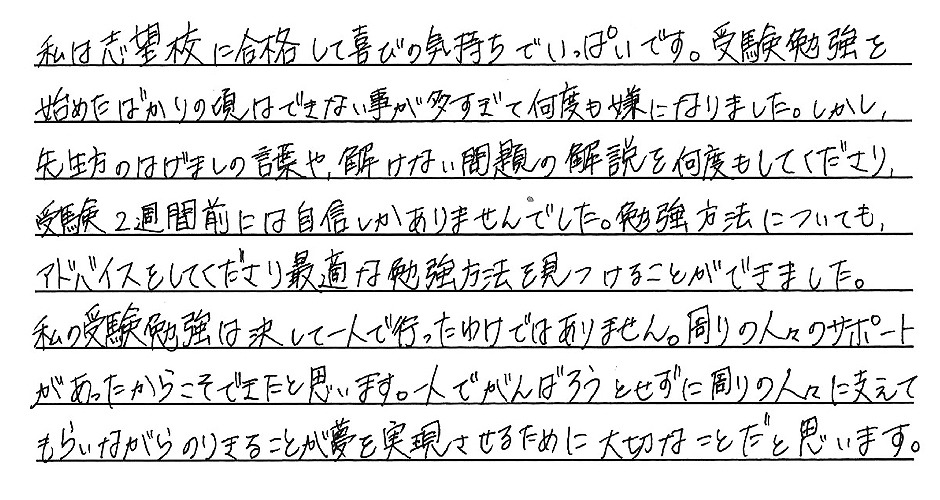 私は志望校に合格して喜びの気持ちでいっぱいです。受験勉強を
始めたばかりの頃はできない事が多すぎて何度も嫌になりました。しかし、
先生方のはげましの言葉や、解けない問題の解説を何度もしてくださり、
受験2週間前には自信しかありませんでした。勉強方法についても、
アドバイスをしてくださり最適な勉強方法を見つけることができました。
私の受験勉強は決して一人で行ったわけではありません。周りの人々のサポート
があったからこそできたと思います。一人でがんばろうとせずに周りの人々に支えて
もらいながらのりきることが夢を実現させるために大切なことだと思います。